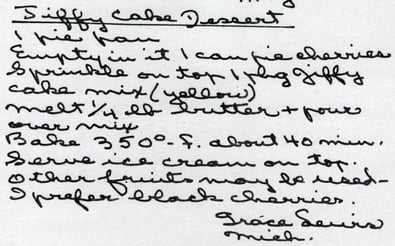 Jiffy Cake Dessert
1 pie pan
Empty in it 1 can pie cherries
Sprinkle on top 1 pkg Jiffy
cake mix (yellow)
melt 1/4 lb butter + pour
over mix
Bake 350°-F. about 40 min.
Serve ice cream on top.
Other fruits may be used-
I prefer black cherries.
Grace Lewis
Mich.